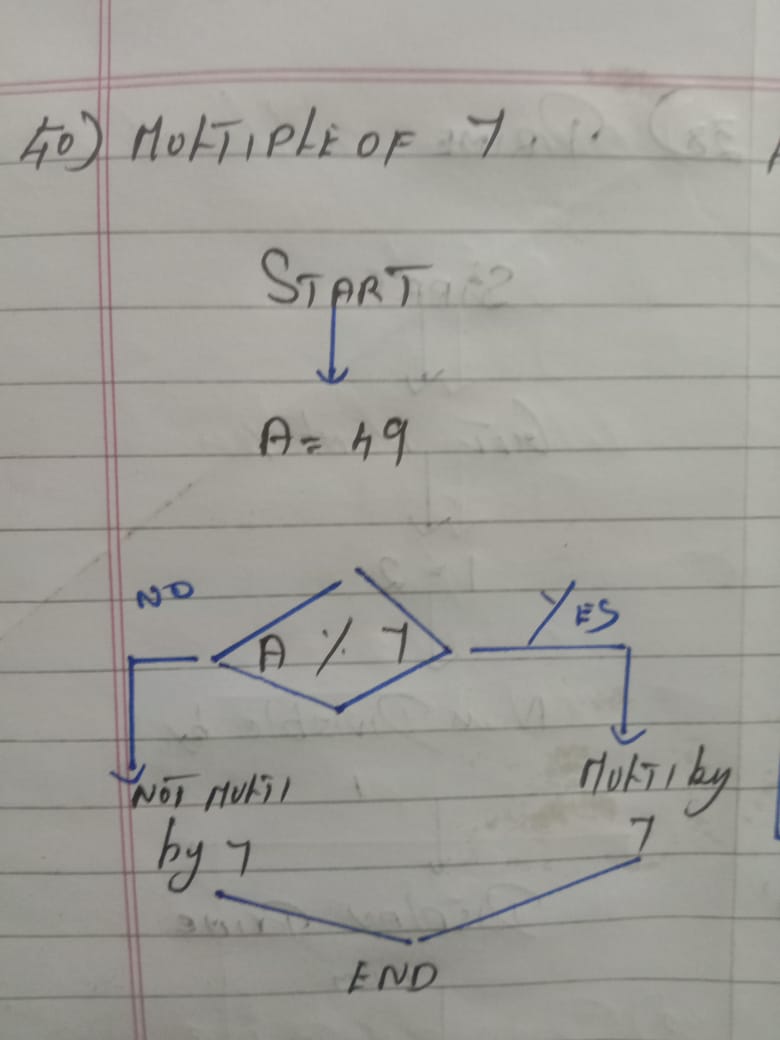 40) MULTIPLE OF 7.
START
A = 49
NO
YES
A % 7
NOT MULTI
by 7
MULTI by
7
END